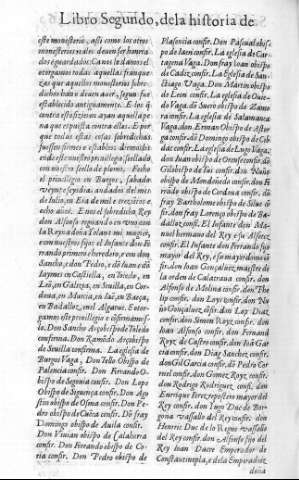 Libro Segundo, dela historia de
este monesterio, assi como los otros
monesterios reales deven ser honrra-
dos é guardados: Ca nos le damos é
otorgamos todas aquellas franque-
zas que aquellos monesterios sobre-
dichos han é deven aver, segun fue
establecido antiguamente. E los que
contra esto fizieren ayan aquella pe-
na que es puesta contra ellos. E por
que todas estas cosas sobredichas
fuessen firmes é estables, di
este privilegio, sellado
con nuestro sello de plomo. Fecho
el privilegio en Burgos, sabado
veynte é seys dias andados del mes
de Julio, en Era de mil é trezientos é
ocho años. E nos el sobredicho, Rey
don Alfonso regnando en uno con
la Reyna doña Yolant mi muger,
con nuestros fijos el Infante don Fer-
rando primero é heredero, é con don
Sancho, é don Pedro, é don Juan é don
Jaymes en Castiella, en Toledo, en
Leon, en Galizia, en Sevilla, en Cor-
dova, en Murcia, en Iaé, en Baeça,
en Badalloz, en el Algarve. E otorga-
mos este privillegio é confirmamos-
lo. Don Sancho Arçobispo de Toledo
confirma. Don Remōdo Arçobispo
de Sevilla confirma. La eglesia de
Burgos Vaga. Don Tello Obispo de
Palencia confir. Don Ferrando O-
bispo de Segovia confir. Don Lope
Obispo de Siguença confir. Don Agos-
tin Obispo de Osma confir. Don Pe-
dro obispo de Cuēca confir. Dō fray
Domingo obispo de Avila confir.
Don Vivian obispo de Calahorra
confir. Don Ferrando obispo de Co-
ria confir. Don Pedro obispo de
Plasencia confir. Don Pasqual obis-
po de Iaen confir. La eglesia de Car-
tagena Vaga. Don fray Joan obispo
de Cadiz confir. La eglesia de San-
tiago Vaga. Don Martin obispo
de Leon confir. La eglesia de Ovie-
do Vaga. Dō Suero obispo de Zamo-
ra confir. La eglesia de Salamanca
Vaga. don Erman Obispo de Astor-
ga confir. don Domingo obispo de Ciu-
dat confir. La eglesia de Lugo Vaga;
don Juan obispo de Orense confir. dō
Gil obispo de Tui confir. don Nuño
obispo de Mondoñedo confir. don Fe-
rrādo obispo de Cordova confir. dō
fray Bartholome obispo de Silve cō-
fir. don fray Lorenço obispo de Ba-
dalloz confir. El Infante don Ma-
nuel hermano del Rey é su Alferez
confir. El Infante don Ferrando fijo
mayor del Rey, é su mayordomo cō-
fir. don Joan Gonçalvez, maestre de
la orden de Calatrava confir. don
Alfonso de Molina confir. don Phe-
lip confir. don Loys confir. don Nu-
ño Gonçalvez. confir. don Lop Diaz
confir. don Simon Royz confir. don
Joan Alfonso confir. don Fernand
Royz de Castro confir. don Joā Gar-
cia confir. don Diag Sanchez confir.
don Gil Garcia confir. dō Pedro Cor-
nel confir. don Gomez Royz confir.
don Rodrigo Rodriguez confir. don
Enrrique Perez repostero mayor del
Rey confir. don Yugo Duc de Bor-
goña vassallo del Rey confir. don
Henric Duc de lo Regne vassallo
del Rey confir. don Alfonso fijo del
Rey Joan Dacre Emperador de
Constantinopla, é dela Emperadriz
doña